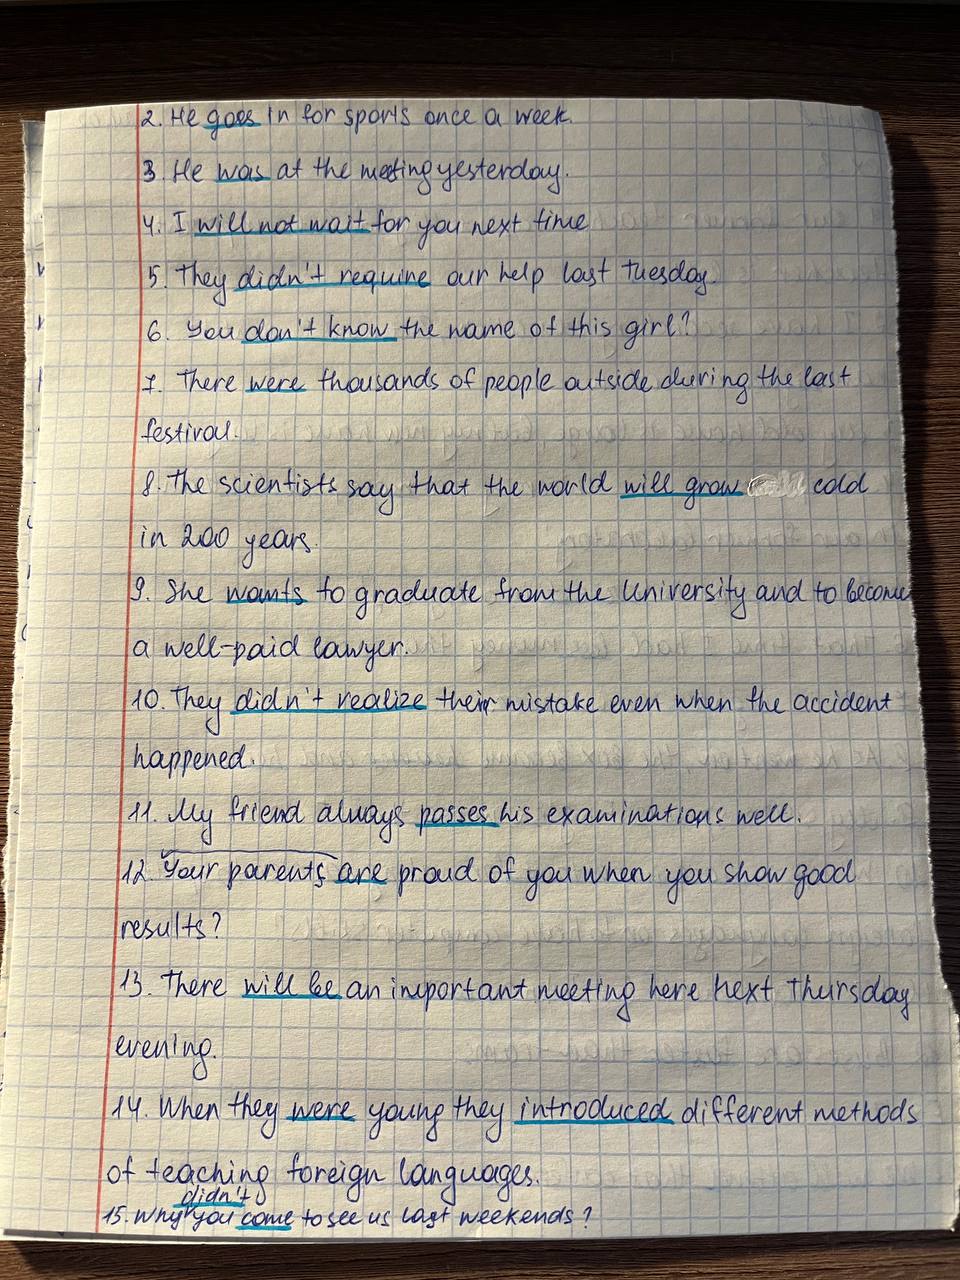 2. He goes in for sports once a week.
3. He was at the meeting yesterday.
4. I will not wait for you next time
5. They didn't require our help last Tuesday.
6. You don't know the name of this girl?
7. There were thousands of people outside during the last
festival.
8. The scientists say that the world will grow cold
in 200 years.
9. She wants to graduate from the University and to become
a well-paid lawyer.
10. They didn't realize their mistake even when the accident
happened.
11. My friend always passes his examinations well.
12. Your parents are proud of you when you show good
results?
13. There will be an important meeting here next Thursday
evening.
14. When they were young they introduced different methods
of teaching foreign languages.
didn't
15. Why you come to see us last weekends?